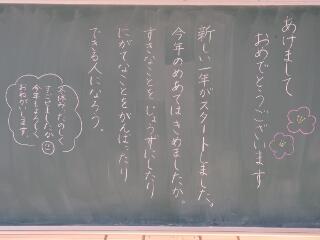 あけまして
おめでとうございます
新しい一年がスタートしました。
今年のめあてはきめましたか。
すきなことをじょうずにしたり
にがてなことをがんばったり
できる人になろう。
冬休み、たのしく
すごせましたか
今年もよろしく
おねがいします。